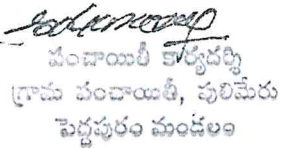 పంచాయితీ కార్యదర్శి
గ్రామ పంచాయితీ, పులిమేరు
పెద్దపురం మండలం